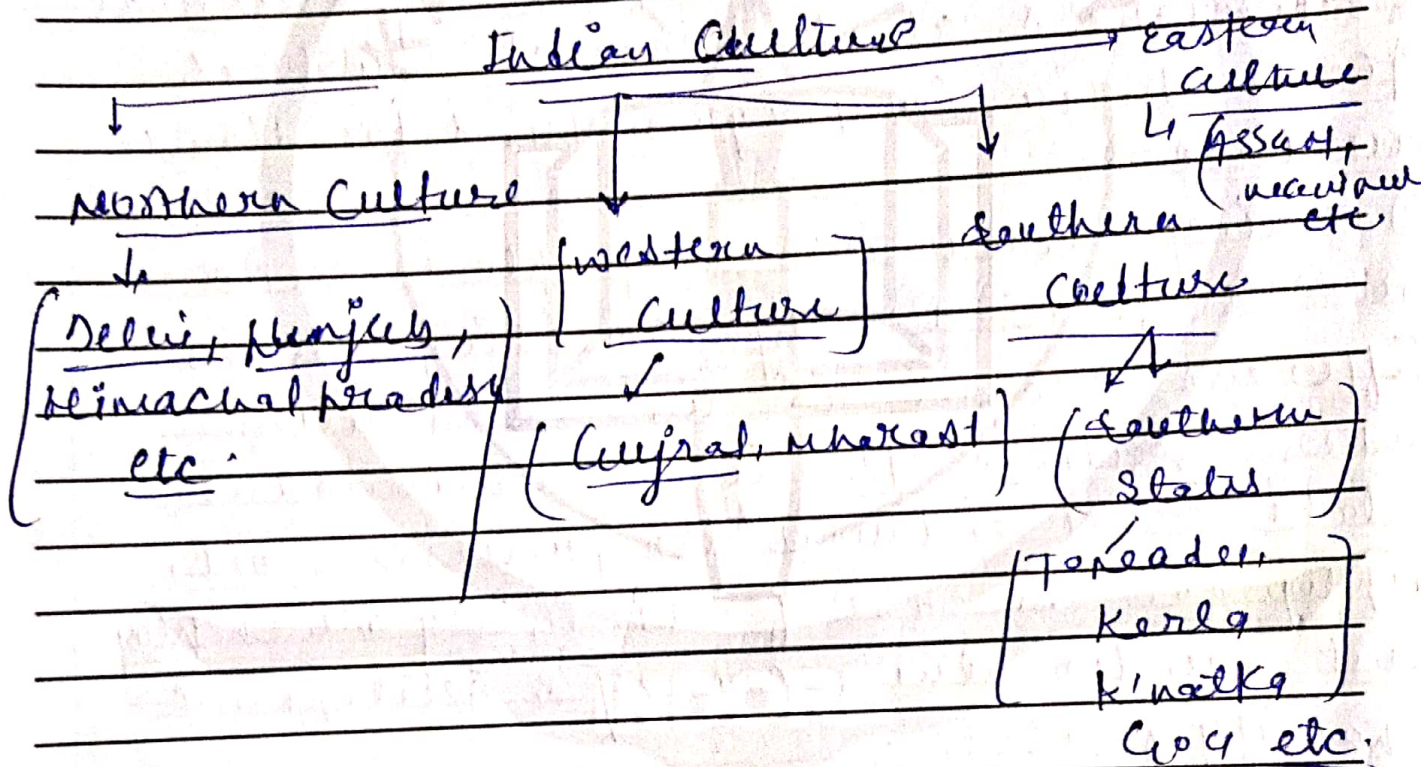 Indian Culture
Eastern
Culture
(Assam,
etc
Northern Culture
(Delhi, Punjab,
Himachal pradesh
etc.
[Western
Culture]
(Gujrat, Mharast)
Southern
Culture
(Southern
States)
Kerla
K'natka
Goa etc.